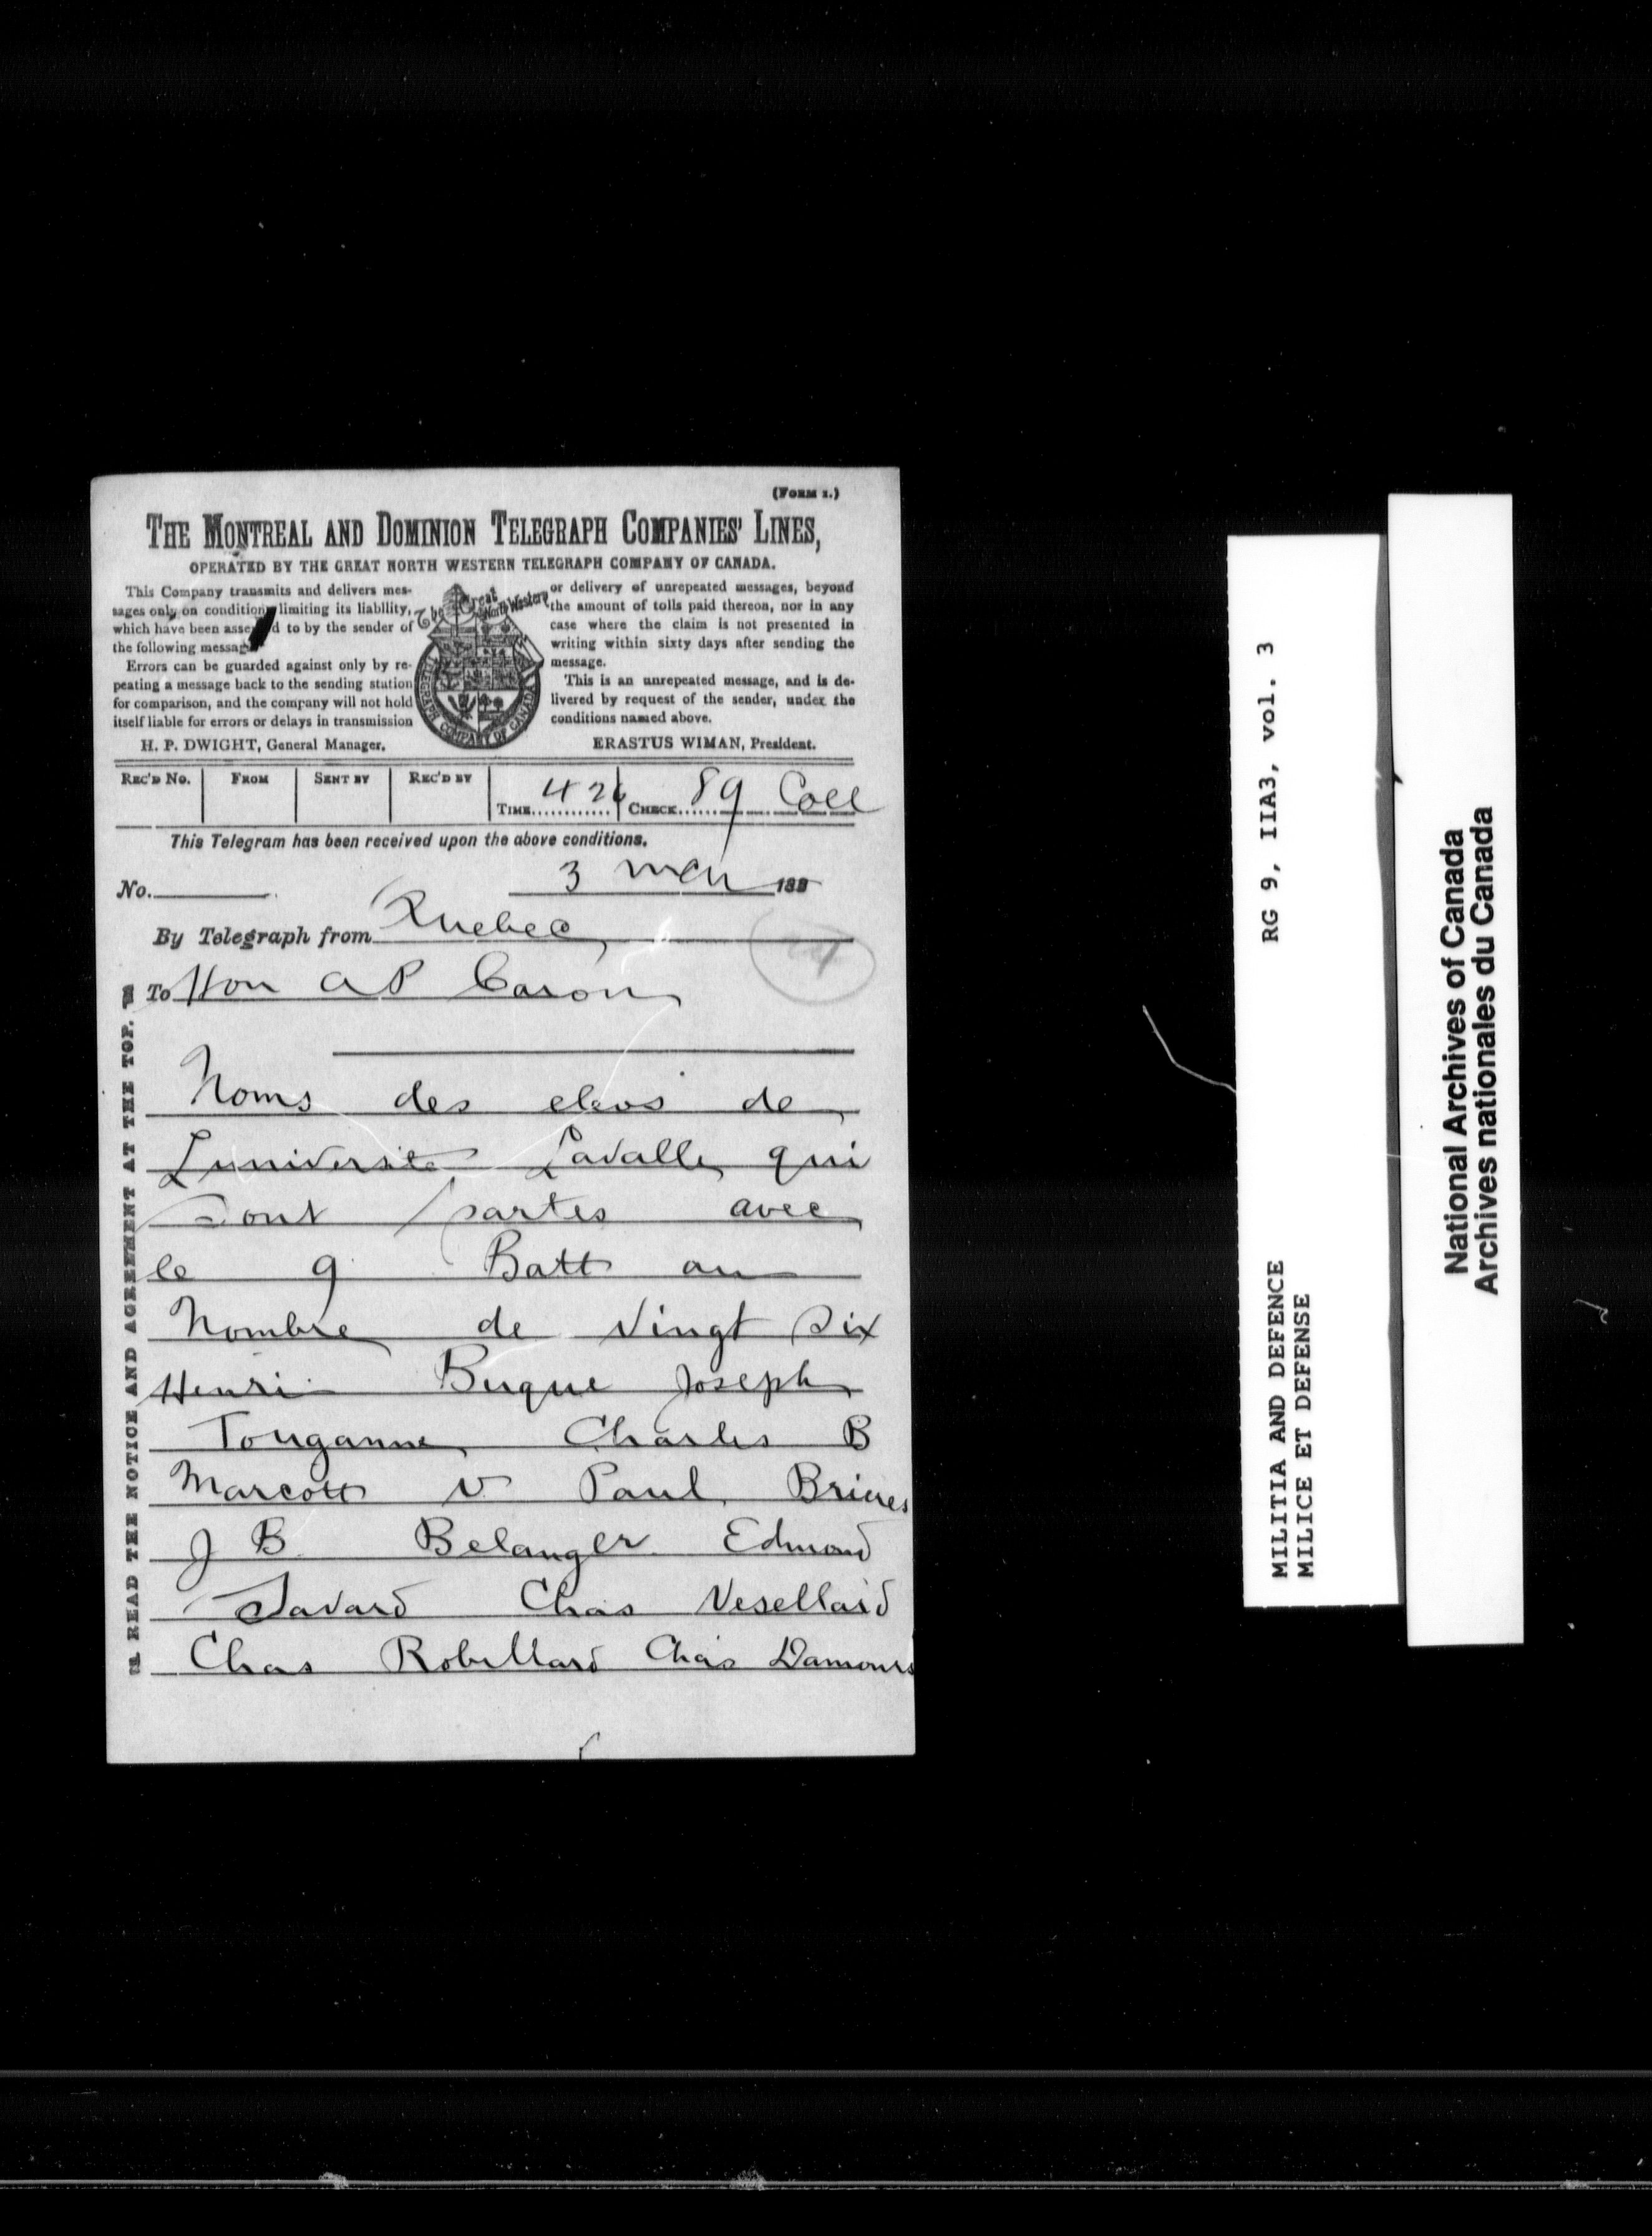 (FORM 1.)
THE MONTREAL AND DOMINION TELEGRAPH COMPANIES' LINES,
OPERATED BY THE GREAT NORTH WESTERN TELEGRAPH COMPANY OF CANADA.
This Company transmits and delivers mes-
sages only on conditions limiting its liability,
which have been assented to by the sender of
the following message.
Errors can be guarded against only by re-
peating a message back to the sending station
for comparison, and the company will not hold
itself liable for errors or delays in transmission
H. P. DWIGHT, General Manager.
The Great North Western
TELEGRAPH COMPANY OF CANADA
or delivery of unrepeated messages, beyond
the amount of tolls paid thereon, nor in any
case where the claim is not presented in
writing within sixty days after sending the
message.
This is an unrepeated message, and is de-
livered by request of the sender, under the
conditions named above.
ERASTUS WIMAN, President.
REC'D No. FROM SENT BY REC'D BY TIME 426 CHECK 89 Coll
This Telegram has been received upon the above conditions.
No. 3 188
By Telegraph from Quebec
To Hon A P Caron
READ THE NOTICE AND AGREEMENT AT THE TOP.
Noms des elevs de
Luniversite Lavalle qui
Sont partes avec
le 9 Batt au
Nombre de Vingt Six
Henri Buque Joseph
Touganne Charles B
Marcott V Paul Brieres
J B Belanger Edmond
Savard Chas Vesellard
Chas Robillard Chas Damours
RG 9, IIA3, vol. 3
MILITIA AND DEFENCE
MILICE ET DEFENSE
National Archives of Canada
Archives nationales du Canada